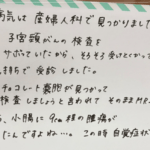 病気は 産婦人科で見つかりました
子宮頸がんの検査を
サボっていたから、そろそろ受けとくかって
気持ちで受診しました。
チョコレート嚢胞が見つかって
検査しましょうと言われて そのままMR
ら、小腸に 9cm程の腫瘍が
たんですよね…。この時自覚症状